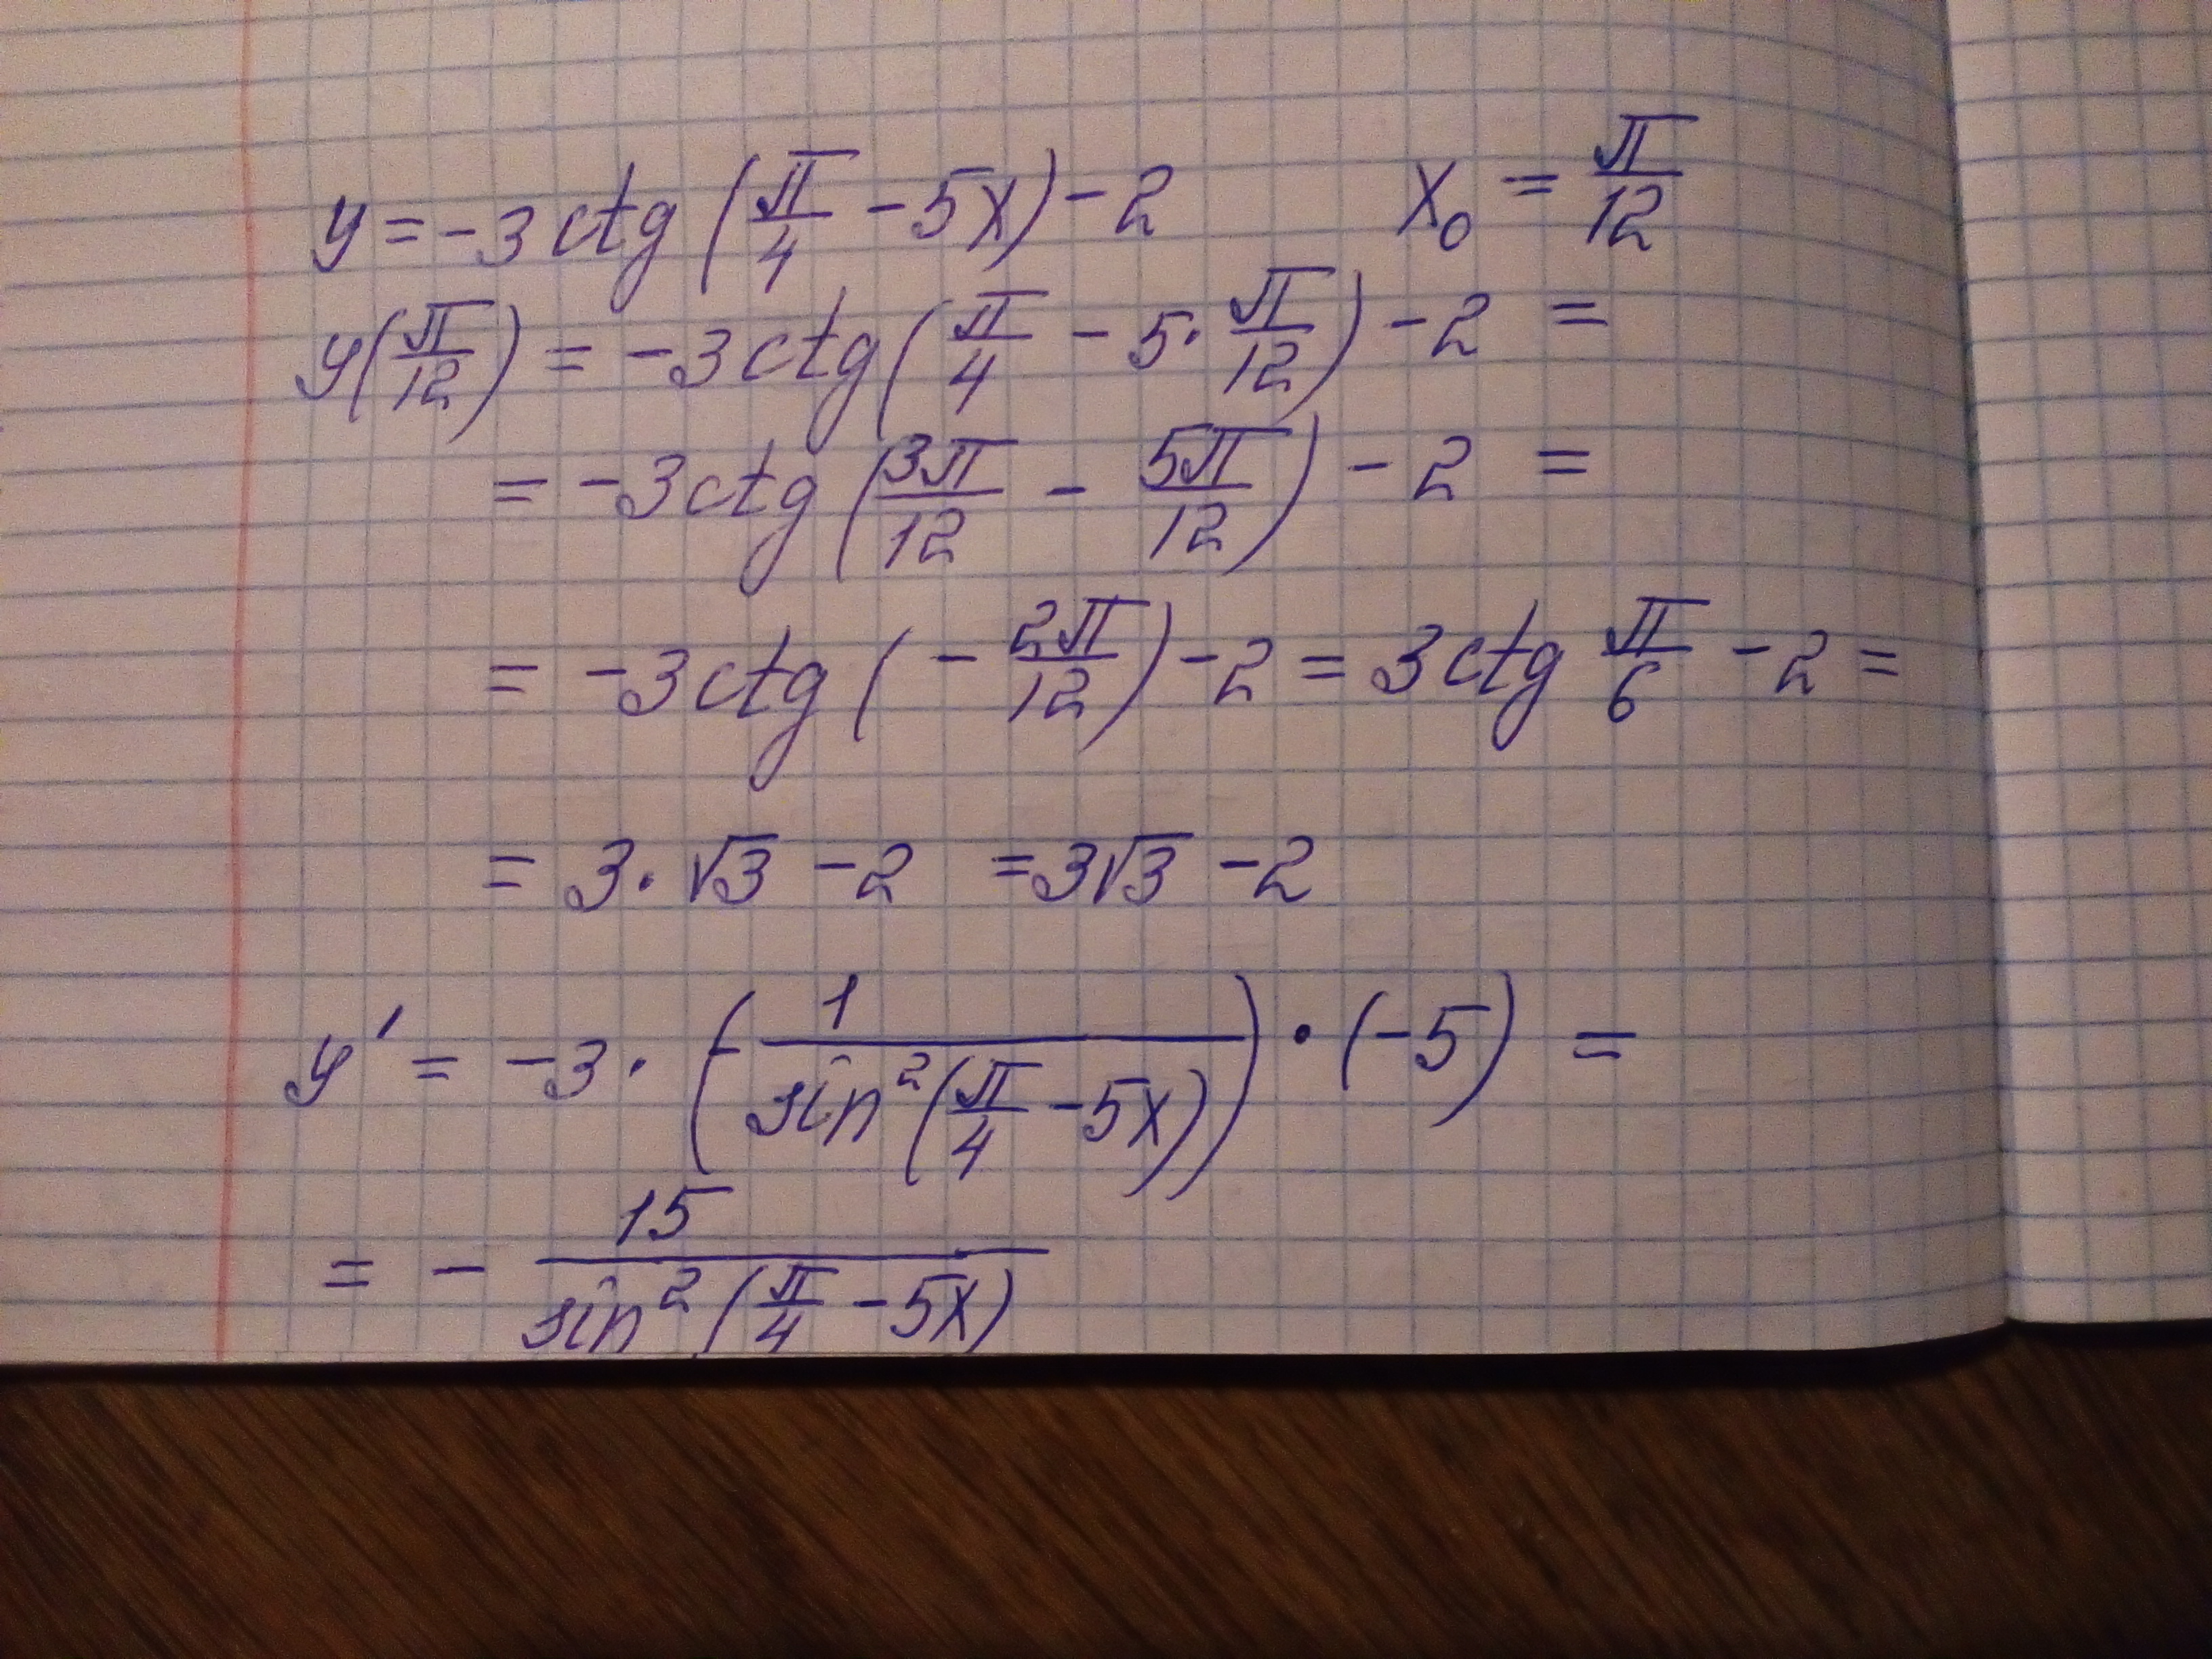 y = -3 ctg (π/4 - 5x) - 2    x₀ = π/12
y(π/12) = -3 ctg (π/4 - 5 · π/12) - 2 =
= -3 ctg (3π/12 - 5π/12) - 2 =
= -3 ctg (- 2π/12) - 2 = 3 ctg π/6 - 2 =
= 3 · √3 - 2 = 3√3 - 2
y' = -3 · (- 1/sin²(π/4 - 5x)) · (-5) =
= - 15/sin²(π/4 - 5x)